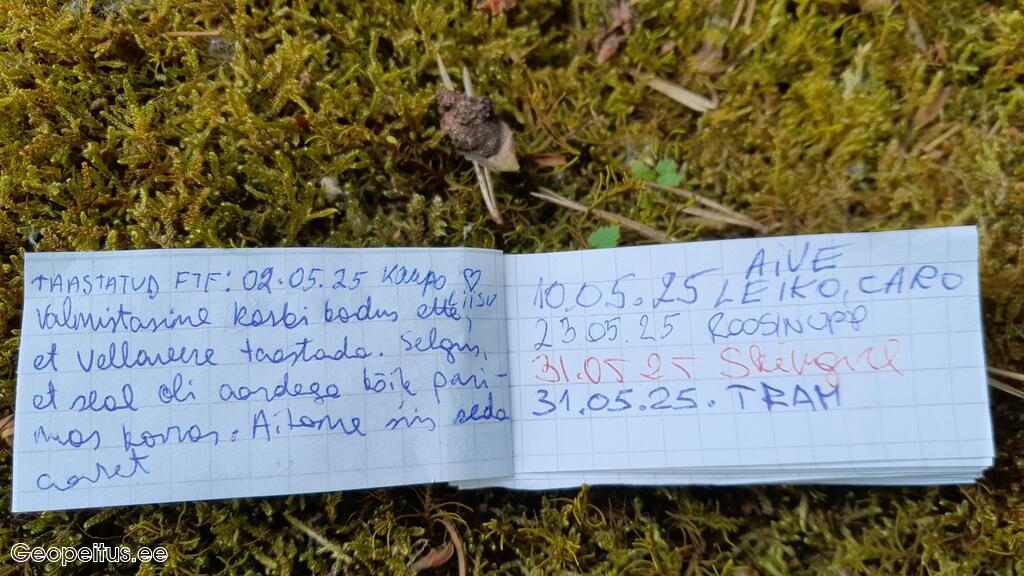 TAASTATUD FTF: 02.05.25 KAUPO ♡
Valmistasime karbi kodus ette, Liisu
et Vellavere taastada. Selgus,
et seal oli aardega kõik pari-
mas korras. Aitame siis seda
aaret
AIVE
10.05.25 LEIKO, CARO
23.05.25 ROOSINUPP
31.05.25
31.05.25. TRAM
Geopeitus.ee